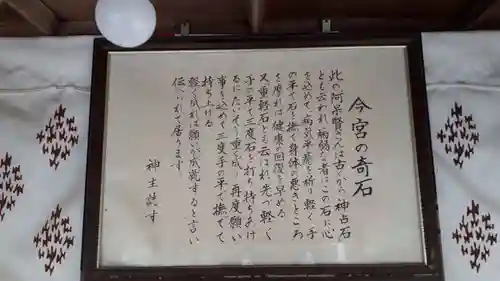 今宮の奇石
此の阿呆賢さんは古くから神占石
とも云われ病弱な者はこの石に心
を込めて病気平癒を祈り軽く手
の平で石を撫で身体の悪きところ
を摩れば健康の回復を早める
又重軽石とも云はれ先づ軽く
手の平で三度石を打ち持ち上げ
るにたいそう重く成り再度願い
事を込めて三度手の平で撫でて
持ち上げる
軽く成れば願いが成就すると言い
伝へられて居ります
神主詰す